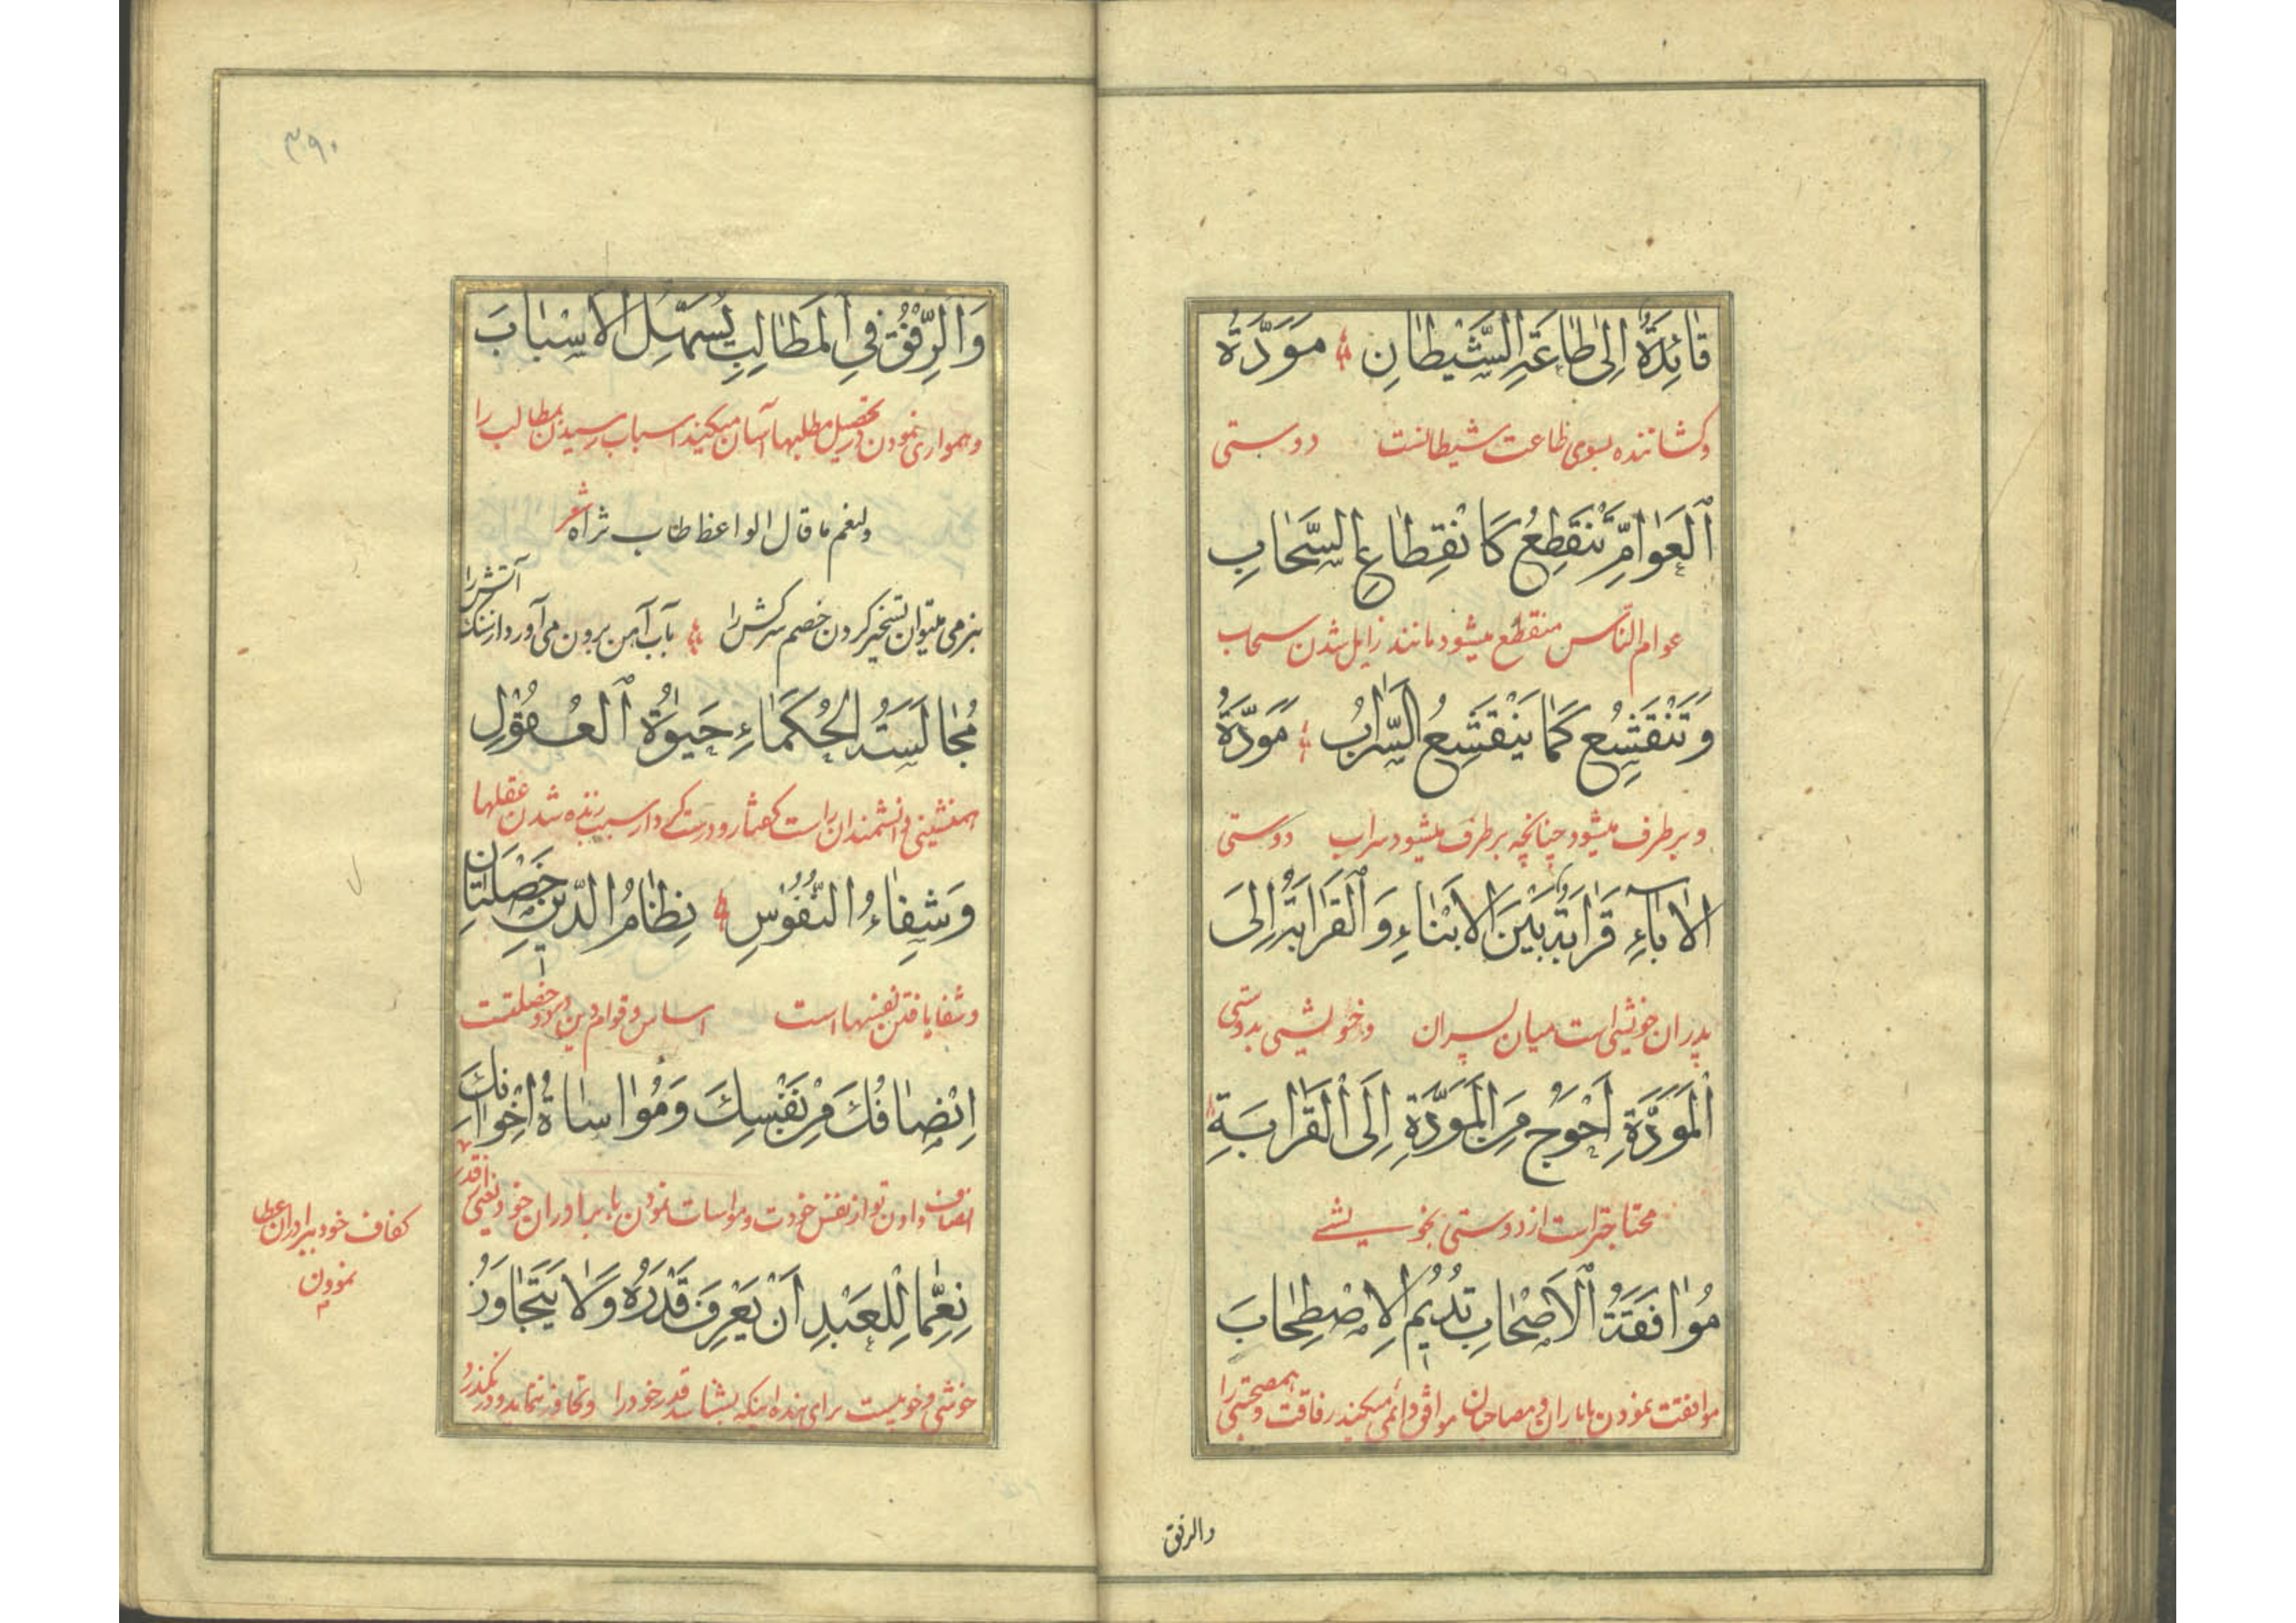 قٰائِدَةٌ اِلىٰ طٰاعَةِ الشَّيْطٰانِ مَوَدَّةُ
وکشاننده بسوی طاعت شیطانست دوستی
اَلْعَوٰامِّ تَنْقَطِعُ كَانْقِطٰاعِ السَّحٰابِ
عوام الناس منقطع میشود مانند زایل شدن سحاب
وَتَنْقَشِعُ كَمٰا يَنْقَشِعُ السَّرٰابُ مَوَدَّةُ
و برطرف میشود چنانچه برطرف میشود سراب دوستی
الْاٰبٰاءِ قَرٰابَةٌ بَيْنَ الْاَبْنٰاءِ وَالْقَرٰابَةُ اِلَى
پدران خویشی است میان پسران و خویشی بدوستی
الْمَوَدَّةِ اَحْوَجُ مِنَ الْمَوَدَّةِ اِلَى الْقَرٰابَةِ
محتاجتر است از دوستی بخویشی
مُوٰافَقَةُ الْاَصْحٰابِ تُدِيْمُ الْاِصْطِحٰابَ
موافقت نمودن با یاران و مصاحبان موافق دائمی میکند رفاقت و همصحبتی را
والرفق
۳۹۰
وَالرِّفْقُ فِي الْمَطٰالِبِ يُسَهِّلُ الْاَسْبٰابَ
و همواری نمودن در تحصیل مطلبها آسان میکند اسباب رسیدن بمطالب را
ولنعم ما قال الواعظ طاب ثراه شعر
بنرمی میتوان تسخیر کردن خصم سرکش را بآب آهن برون می‌آورد از سنک آتش را
مُجٰالَسَةُ الْحُكَمٰاءِ حَيٰوةُ الْعُقُوْلِ
همنشینی دانشمندان راست کفتار و درست کردار سبب زنده شدن عقلها
وَشِفٰاءُ النُّفُوْسِ نِظٰامُ الدِّيْنِ خَصْلَتٰانِ
و شفا یافتن نفسهاست اساس و قوام دین بر دو خصلتست
اِنْصٰافُكَ مِنْ نَفْسِكَ وَمُوٰاسٰاةُ اِخْوٰانِكَ
انصاف دادن تو از نفس خودت و مواسات نمودن با برادران خود یعنی از قدر
کفاف خود ببرادران عطا
نمودن
نِعِمّٰا لِلْعَبْدِ اَنْ يَعْرِفَ قَدْرَهُ وَلٰا يَتَجٰاوَزُ
خوشی و خوبیست برای بنده اینکه بشناسد قدر خود را و تجاوز ننماید و در نکذرد